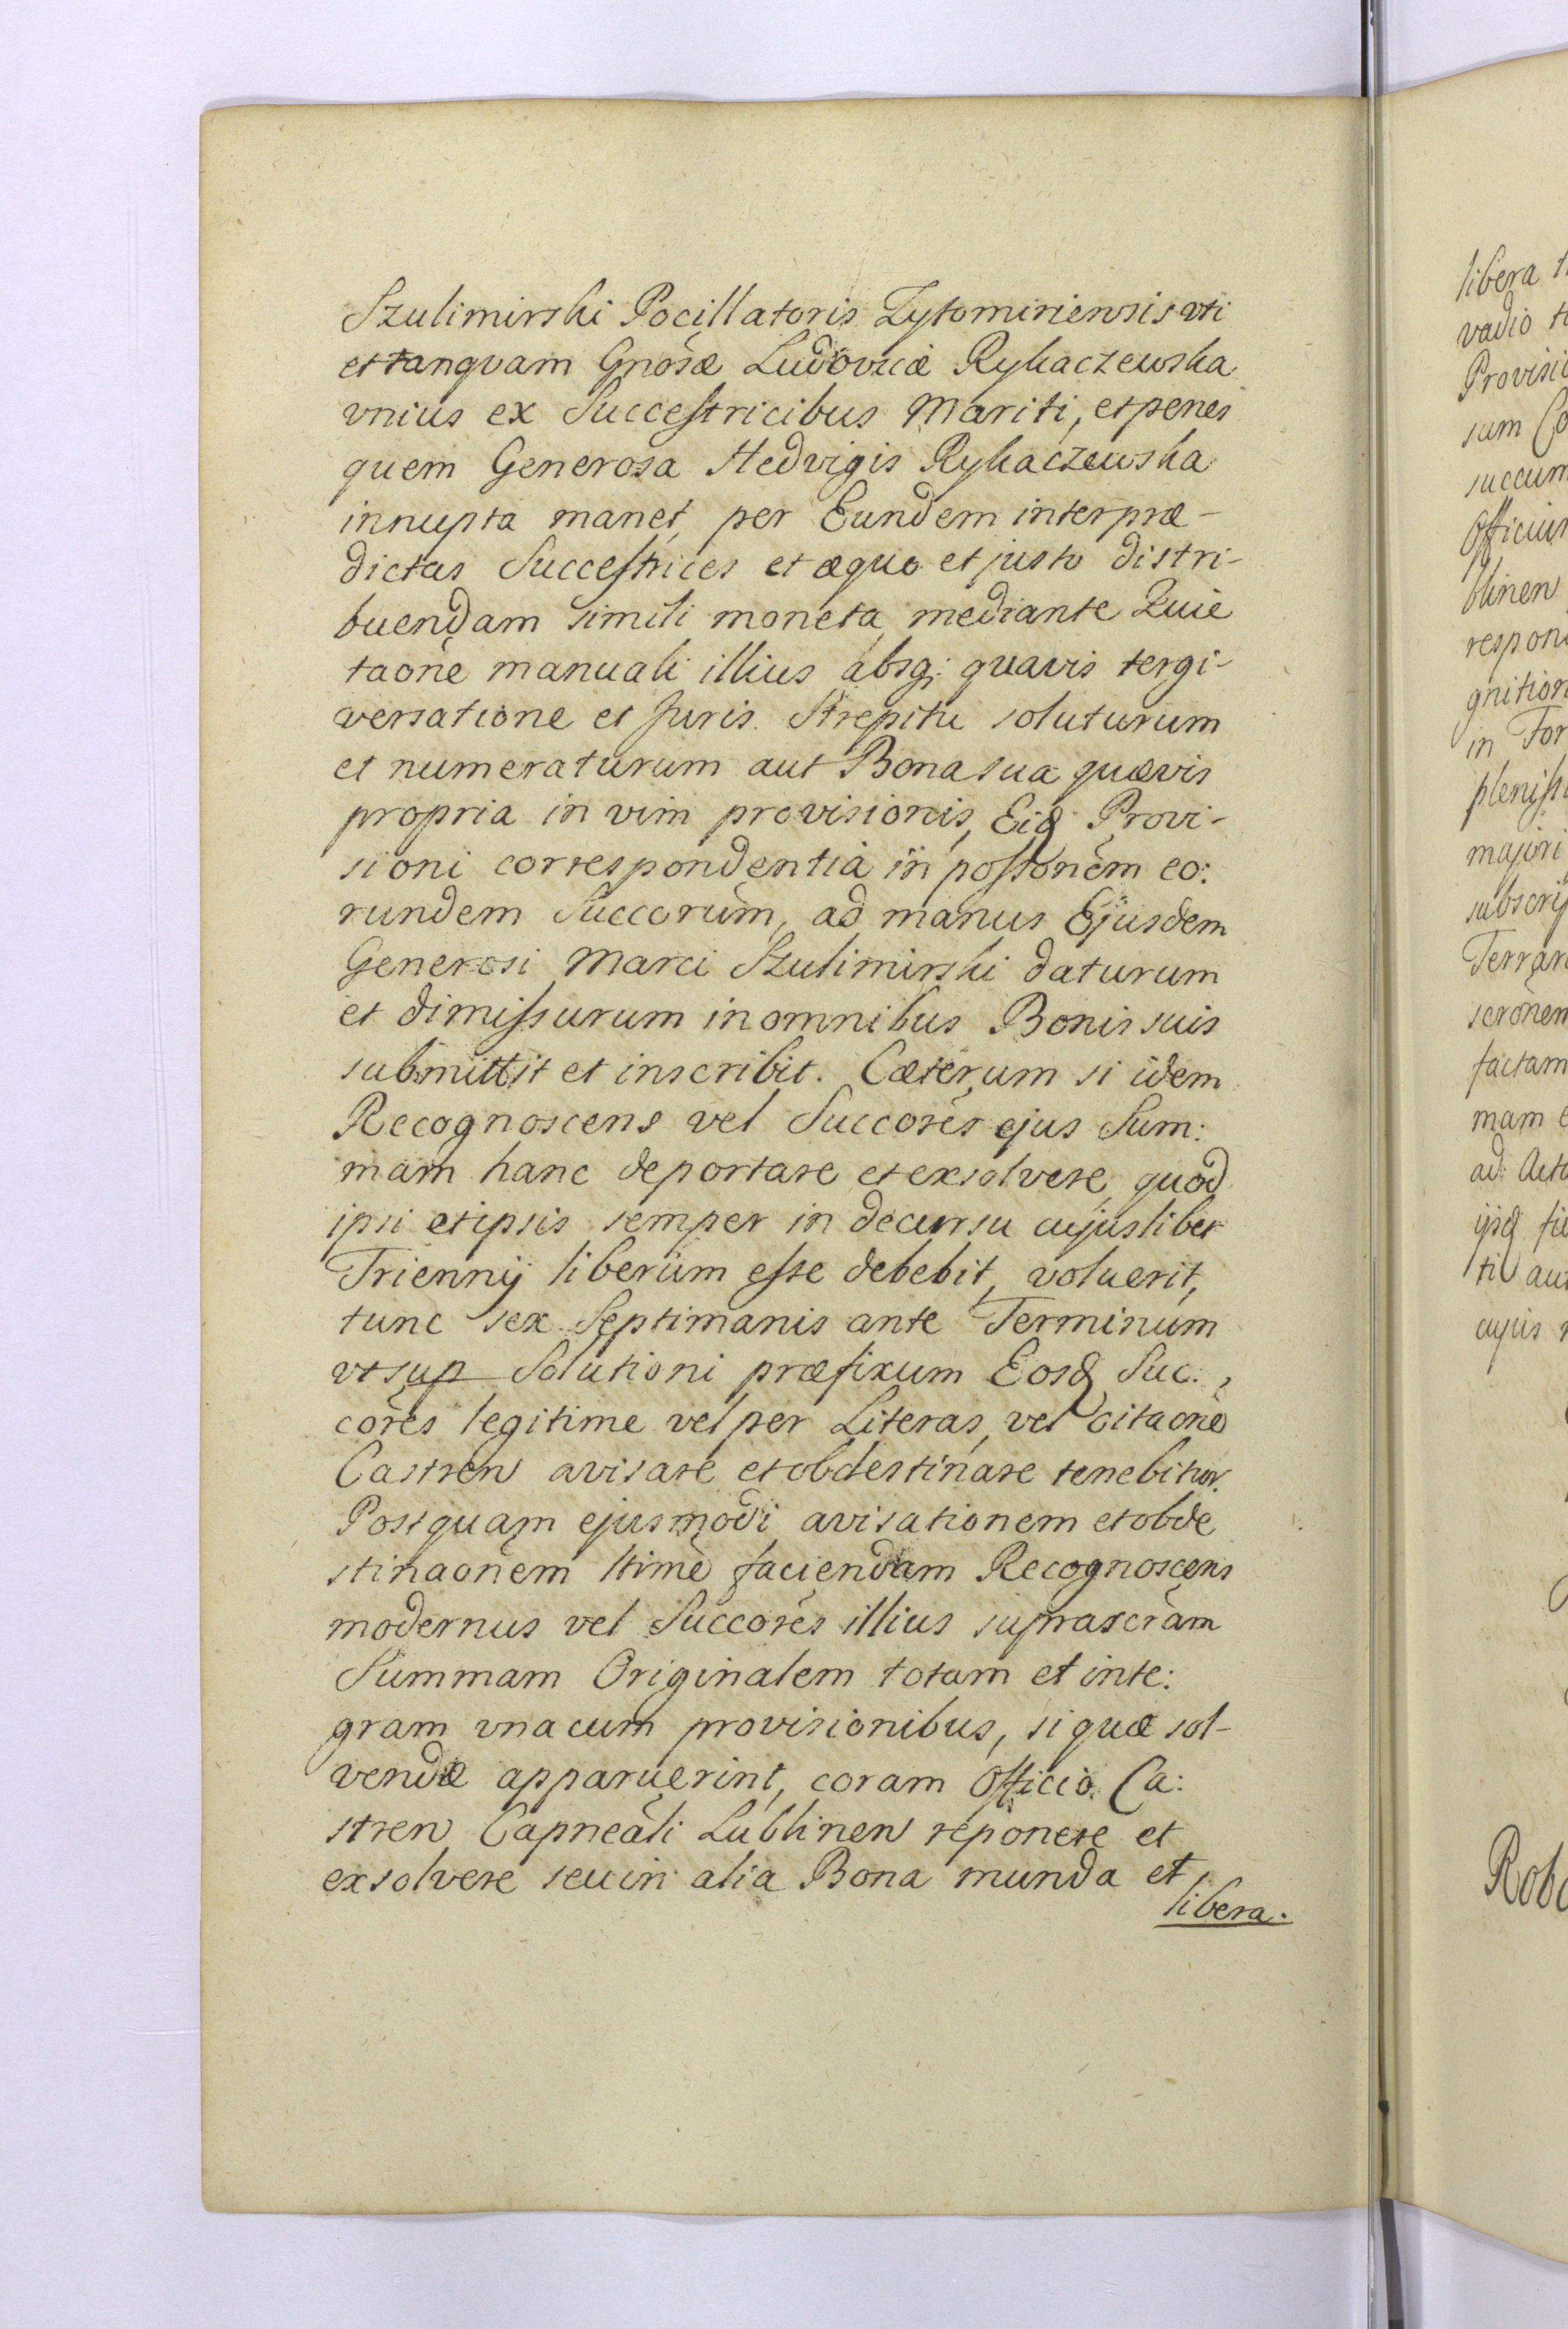 Szulimirski Pocillatoris Zytomiriensis vti
et tanqvam Gnõsæ Ludovicæ Rykaczewska
vnius ex Succeſtricibus Mariti, et penes
quem Generosa Hedvigis Rykaczewska
innupta manet, per Eundem inter præ-
dictas Succeſtrices et æquo et justo distri-
buendam simili moneta, mediante Quie
taõne manuali illius absq; quavis tergi-
versatione et Juris Strepitu soluturum
et numeraturum aut Bona sua quævis
propria in vim provisionis, Eiq Provi-
sioni correspondentia in poſſonẽm eo:
rundem Succorũm, ad manus Ejusdem
Generosi Marci Szulimirski daturum
et dimiſsurum in omnibus Bonis suis
submittit et inscribit. Cæterum si idem
Recognoscens vel Succorẽs ejus Sum:
mam hanc deportare et exsolvere, quod
ipsi et ipsis semper in decursu cujuslibet
Triennij liberum eſse debebit, voluerit,
tunc sex Septimanis ante Terminum
vt sup Solutioni præfixum Eosq Suc:
corẽs legitime vel per Literas, vel citaonẽ
Castren avisare et obdestinare tenebitur.
Post quam ejusmodi avisationem et obde
stinaonẽm ltimẽ faciendam Recognoscens
modernus vel Succorẽs illius suprascrãm
Summam Originalem totam et inte:
gram vna cum provisionibus, si quæ sol-
vendæ apparuerint, coram Officio Ca:
stren Capneãli Lublinen reponere et
exsolvere seu in alia Bona munda et
libera.
libera
vadio
sum
respon
in
mam